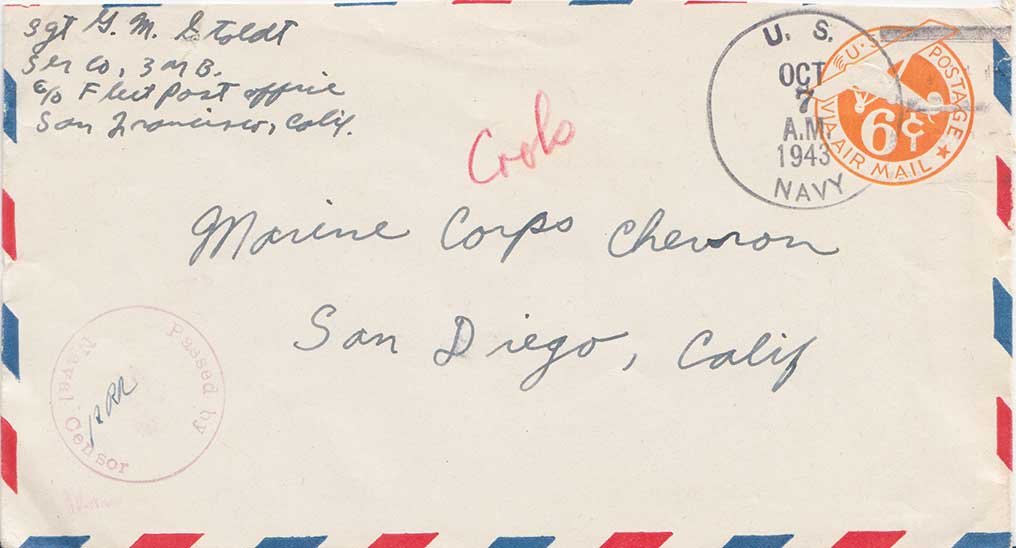 Sgt G. M. Stoldt
Ser Co, 3 M B.
c/o Fleet Post office
San Francisco, Calif.
U. S.
OCT
7
A.M.
1943
NAVY
U.S. POSTAGE
6¢
VIA AIR MAIL
Marine Corps Chevron
San Diego, Calif
Passed by
Naval Censor